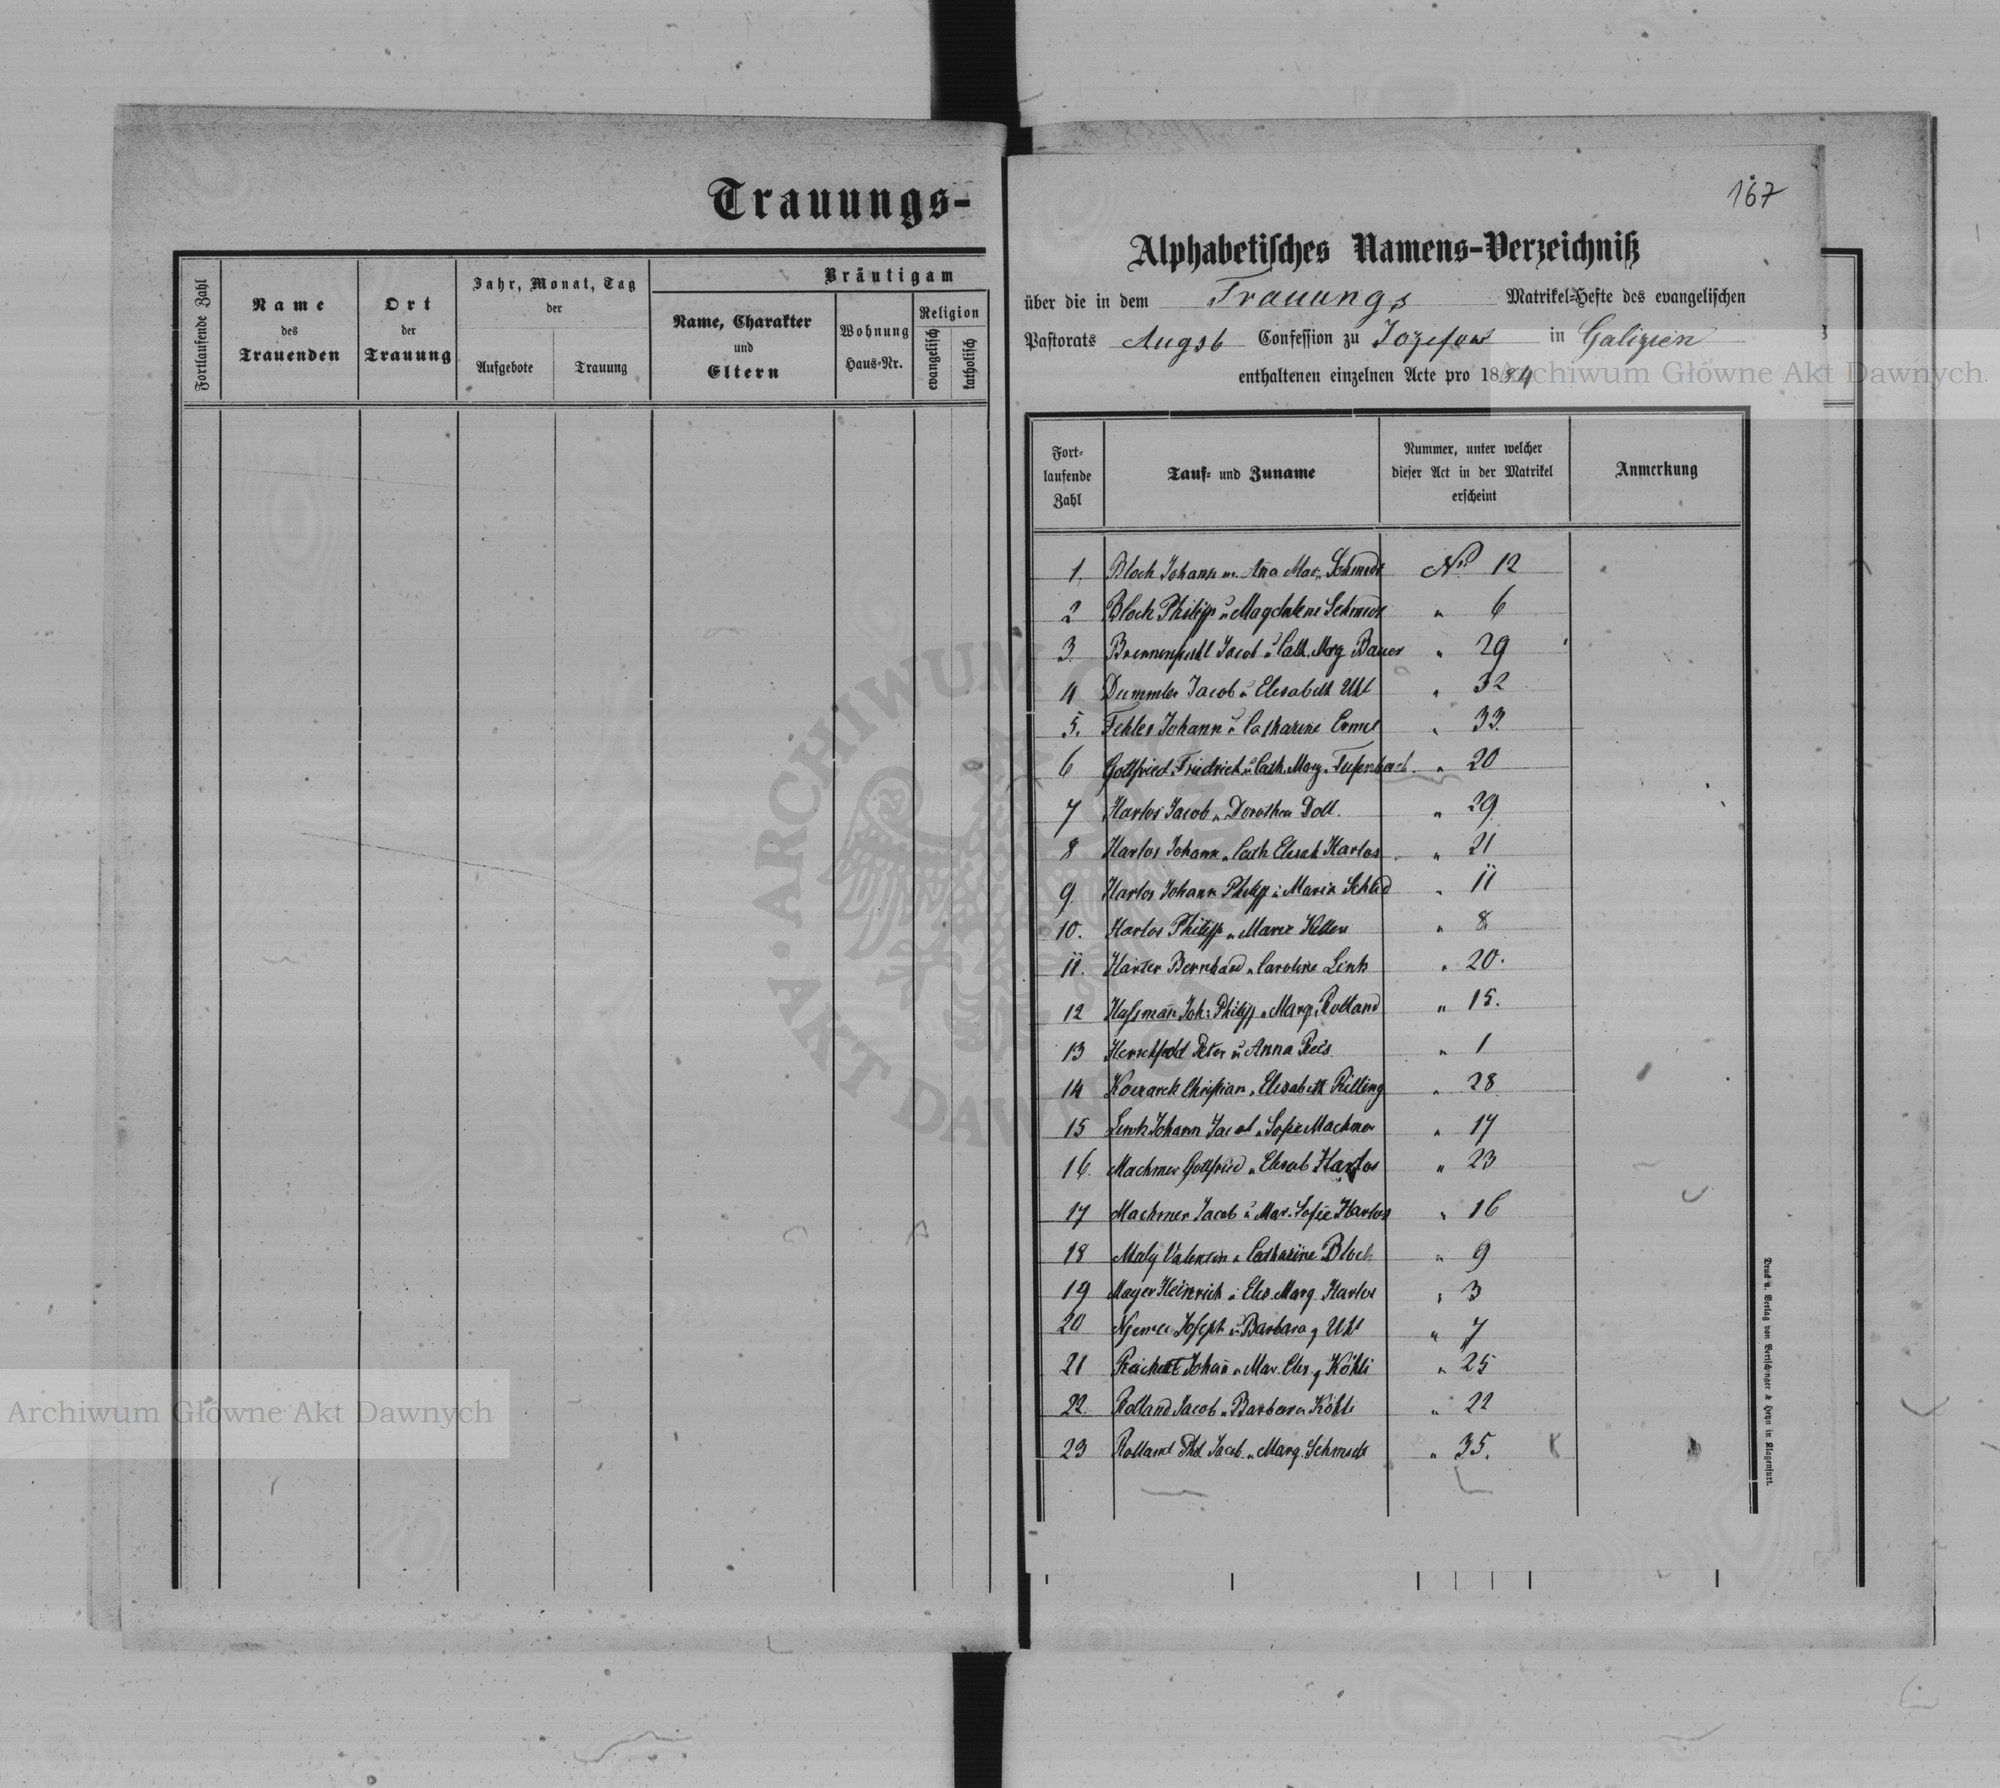 Trauungs-
Fortlaufende Zahl
Name
des
Trauenden
Ort
der
Trauung
Jahr, Monat, Tag
der
Aufgebote
Trauung
Bräutigam
Name, Charakter
und
Eltern
Wohnung
Haus-Nr.
Religion
evangelisch
katholisch
167
Alphabetisches Namens-Verzeichniß
über die in dem Trauungs Matrikel-Hefte des evangelischen
Pastorats Augsb Confession zu Jozefow in Galizien
enthaltenen einzelnen Acte pro 1884
Fort-
laufende
Zahl
Tauf- und Zuname
Nummer, unter welcher
dieser Act in der Matrikel
erscheint
Anmerkung
1. Bloch Johann u. Ana Mar. Schmidt No 12
2 Bloch Philipp u Magdalene Schmidt " 6
3. Jacob u Cath. Marg Bauer " 29
4 Dummler Jacob u Elisabeth Uhl " 32
5. Johann u Catharine " 33.
6 Gottfried Friedrich u Cath. Marg. " 20
7 Harlos Jacob u Dorothea Doll. " 29
8 Harlos Johann u Cath Elisab Harlos " 21
9 Harlos Johann Philipp u Maria Schlid " 11
10. Harlos Philipp u Marie " 8
11. Harter Bernhard u Caroline Link " 20.
12 Joh: Philipp u Marg. Rolland " 15.
13 Peter u Anna Reis " 1
14 Christian u Elisabeth Rilling " 28
15 Link Johann Jacob u Sofie Machmer " 17
16. Machmer Gottfried u Elisab Harlos " 23
17 Machmer Jacob u Mar. Sofie Harlos " 16
18 Maly Valentin u Catharine Bloch " 9
19 Mayer Heinrich u Elis. Marg. Harlos " 3
20 Joseph u Barbara g Uhl " 7
21 Reichert Johan u Mar. Elis. g Köhli " 25
22. Rolland Jacob u Barbara Köhli " 22
23 Rolland Phil Jacob u Marg. Schmidt " 35.
Druck u. Verlag von Bertschinger & Heyn in Klagenfurt.
Archiwum Główne Akt Dawnych
Archiwum Główne Akt Dawnych